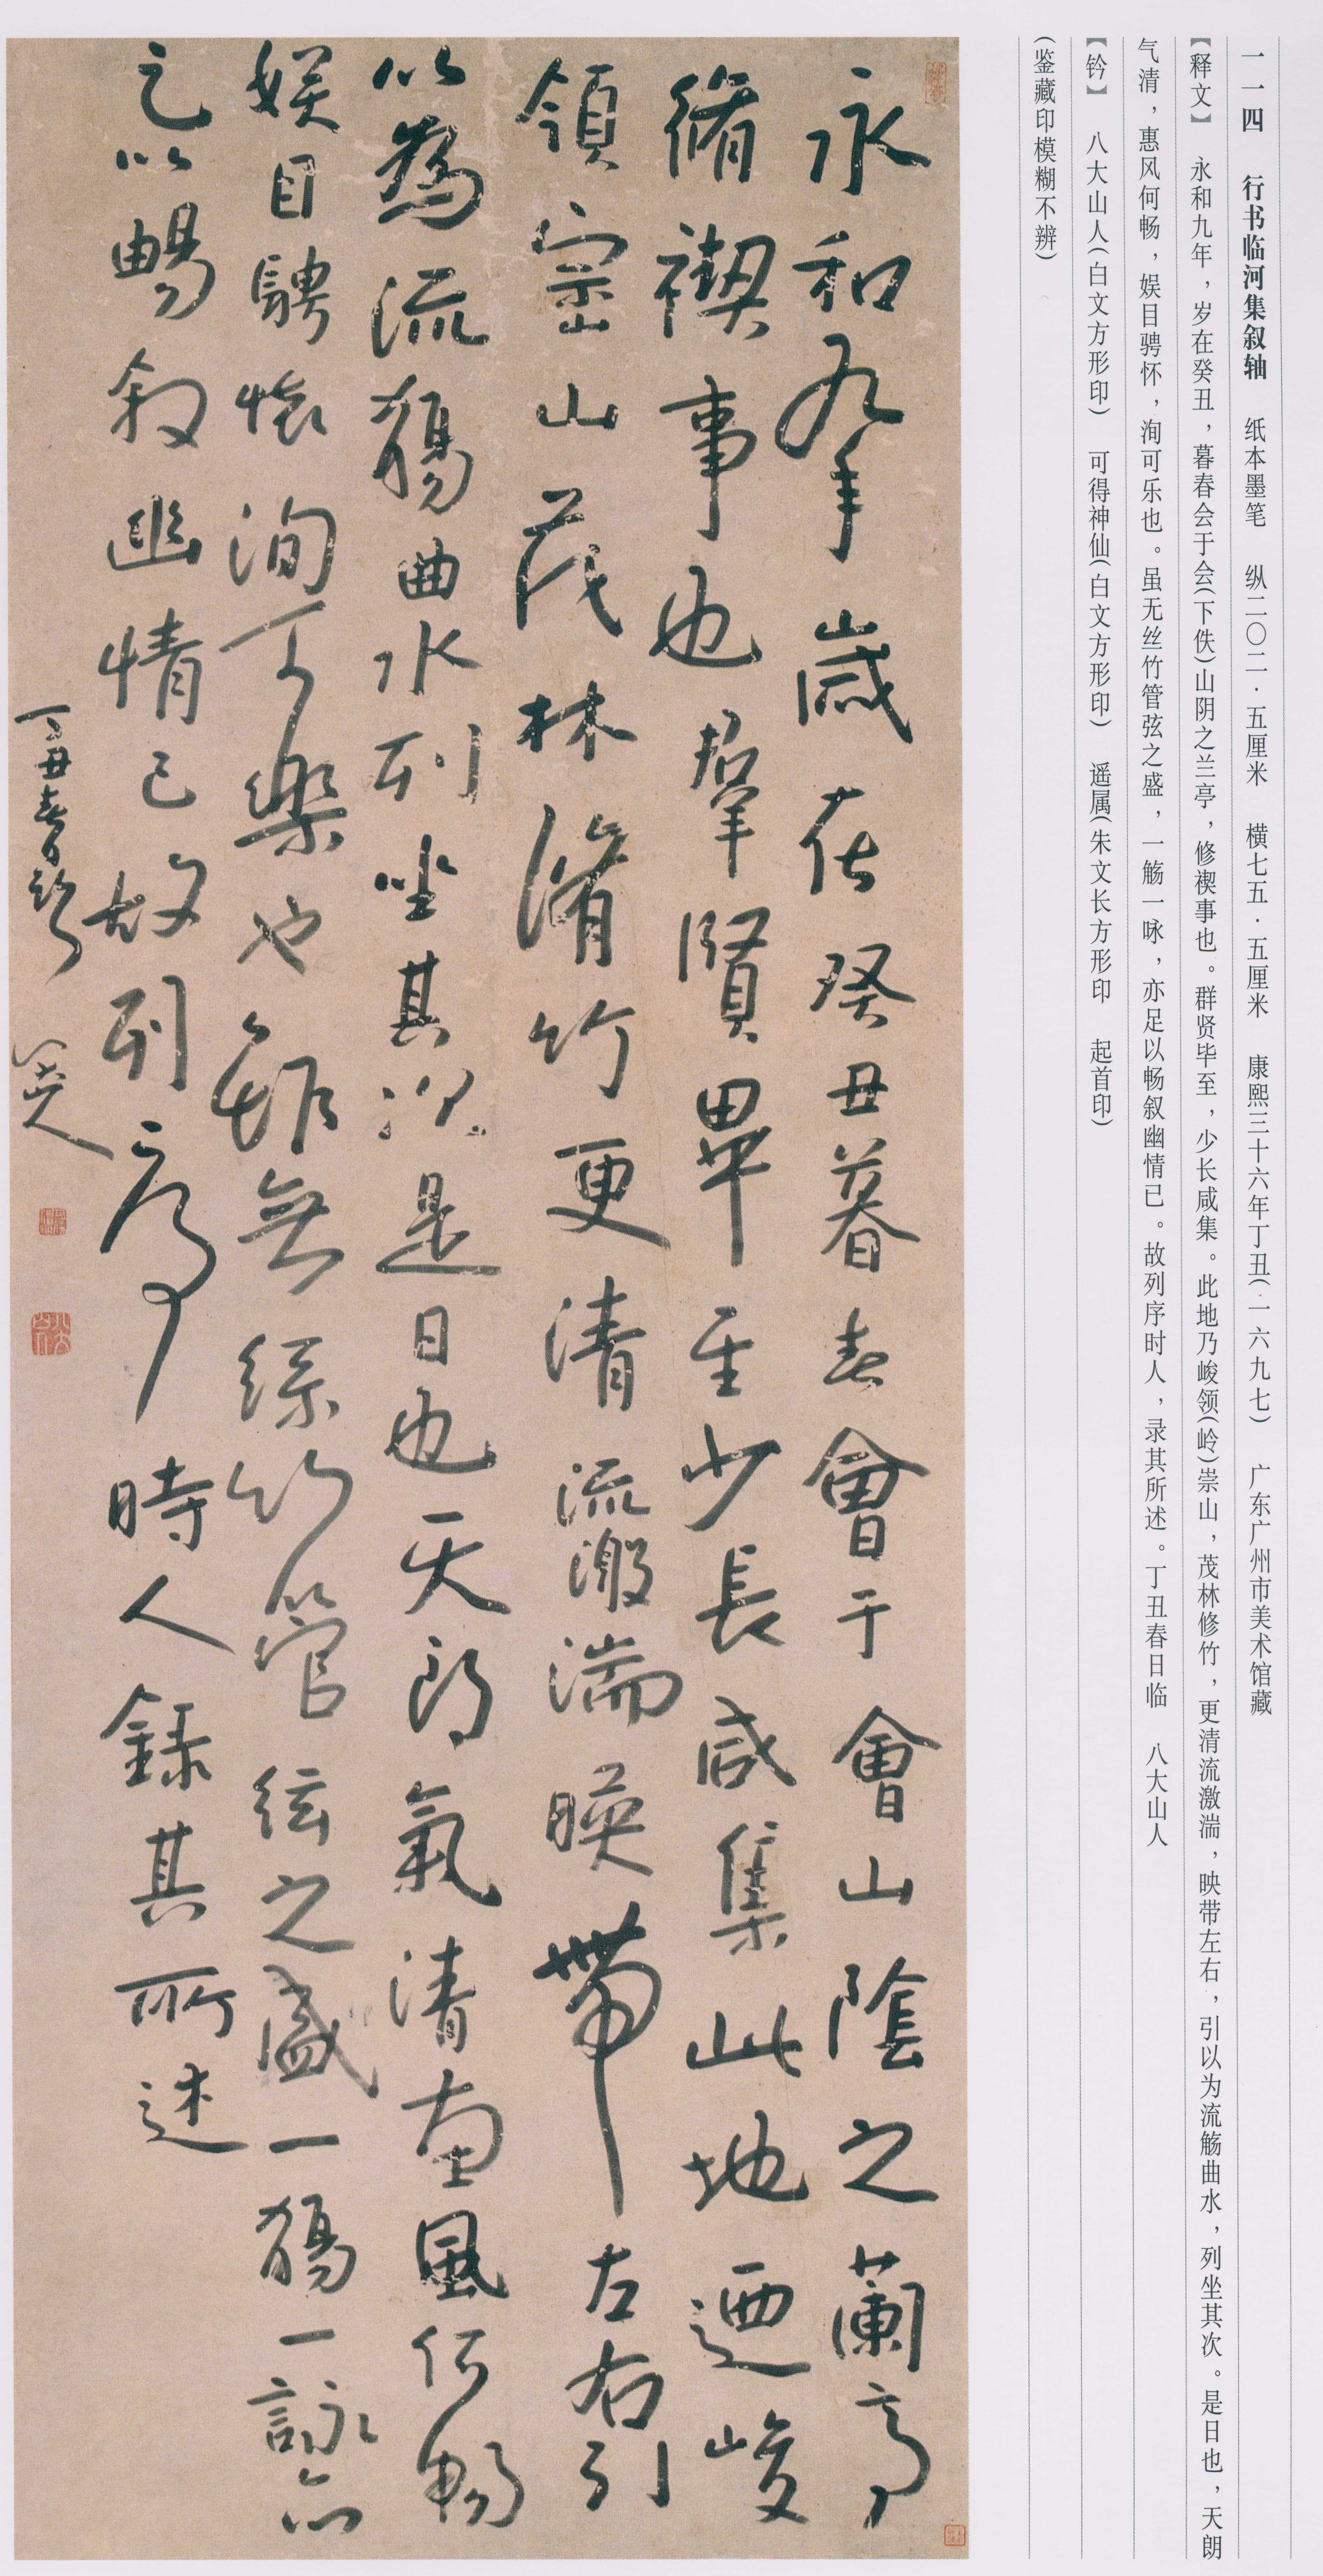 一一四 行书临河集叙轴 纸本墨笔 纵二〇二·五厘米 横七五·五厘米 康熙三十六年丁丑(一六九七) 广东广州市美术馆藏
【释文】 永和九年，岁在癸丑，暮春会于会(下佚)山阴之兰亭，修禊事也。群贤毕至，少长咸集。此地乃峻领(岭)崇山，茂林修竹，更清流激湍，映带左右，引以为流觞曲水，列坐其次。是日也，天朗
气清，惠风何畅，娱目骋怀，洵可乐也。虽无丝竹管弦之盛，一觞一咏，亦足以畅叙幽情已。故列序时人，录其所述。丁丑春日临 八大山人
【钤】 八大山人(白文方形印) 可得神仙(白文方形印) 遥属(朱文长方形印 起首印)
(鉴藏印模糊不辨)
永和九年歲在癸丑暮春會于會山陰之蘭亭
脩禊事也羣賢畢至少長咸集此地迺峻
領崇山茂林脩竹更清流激湍暎帶左右引
以為流觴曲水列坐其次是日也天朗氣清惠風何暢
娱目騁懷洵可樂也雖無絲竹管弦之盛一觴一詠亦
足以暢叙幽情已故列序時人錄其所述
丁丑春日臨 八大山人